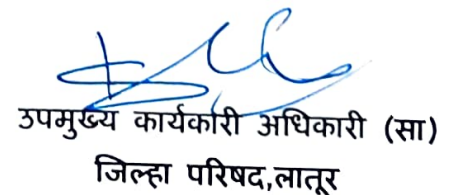 उपमुख्य कार्यकारी अधिकारी (सा)
जिल्हा परिषद,लातूर